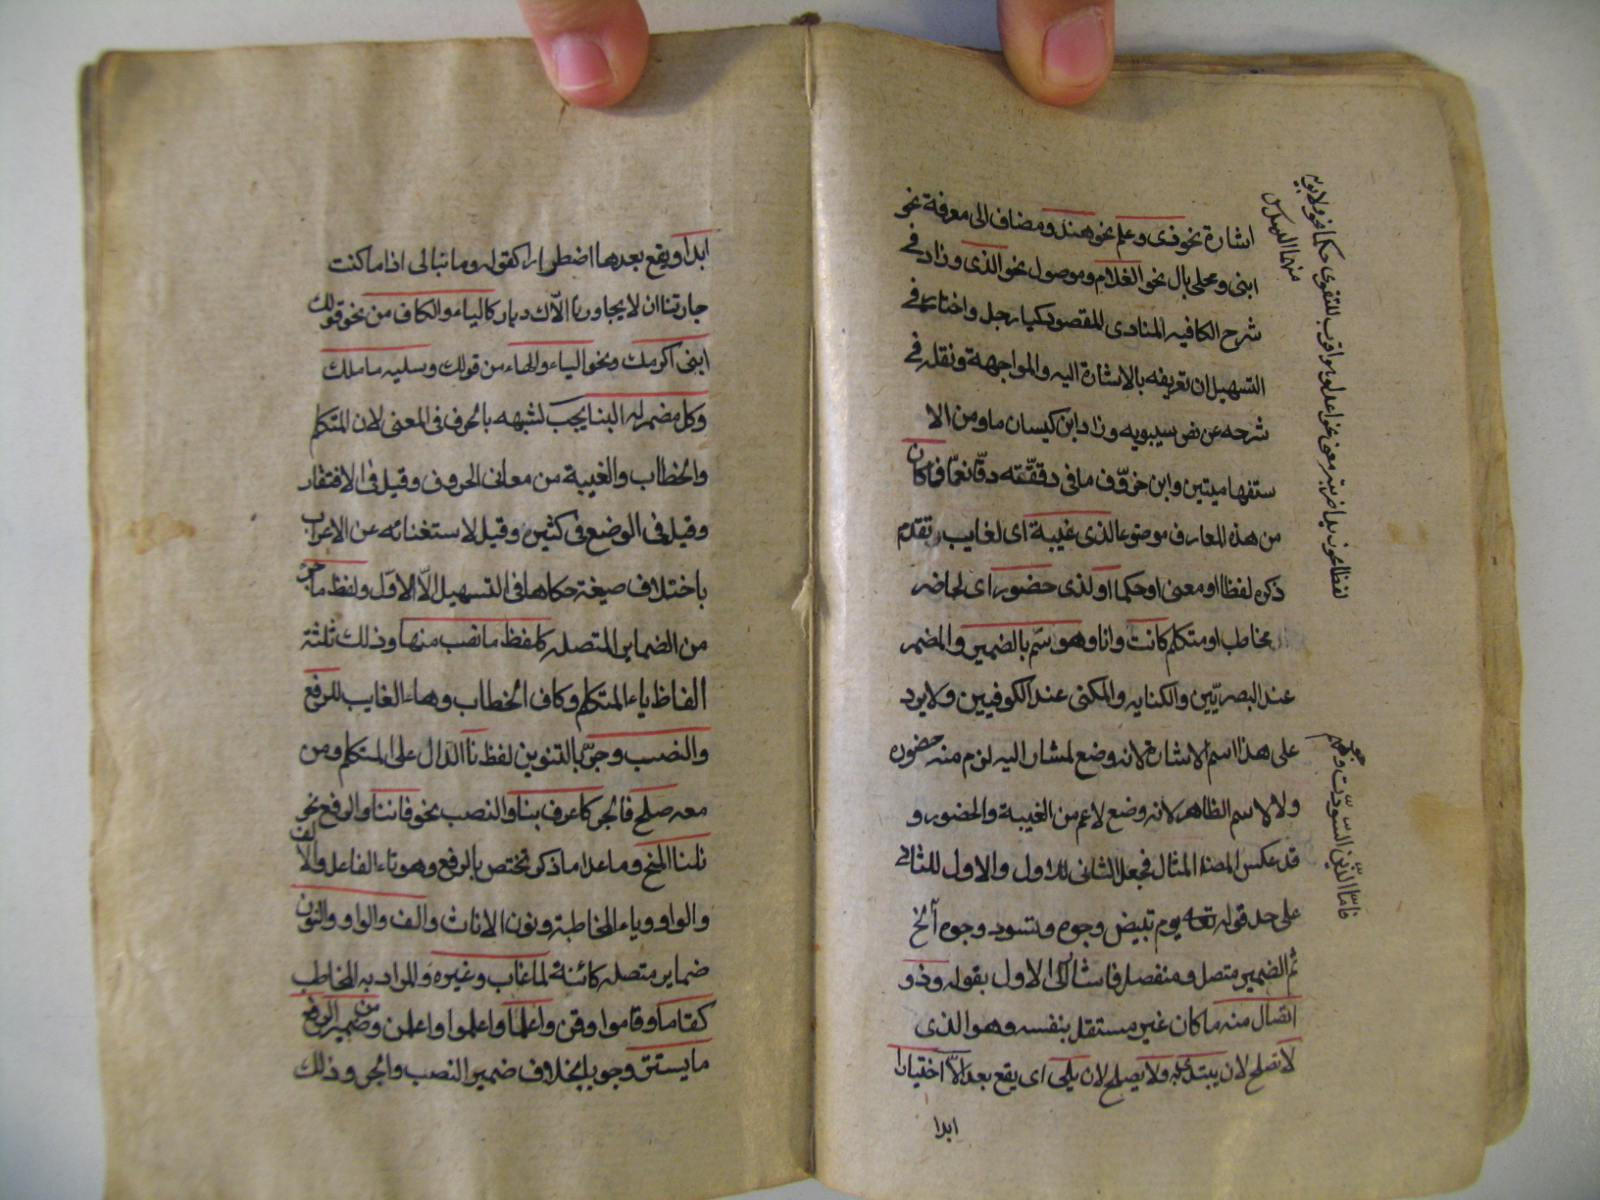 اشارة نحو ذى وعلم نحو هند ومضاف الى معرفة نحو
ابنى ومحلى بال نحو الغلام وموصول نحو الذى وزاد فى
شرح الكافيه المنادى المقصود كيا رجل واختاره فى
التسهيل ان تعريفه بالاشارة اليه والمواجهة ونقله فى
شرحه عن نص سيبويه وزاد ابن كيسان ما ومن الا
ستفهاميتين وابن خروف ما فى دققته دقا نعما فما كان
من هذه المعارف موضوعا لذى غيبة اى لغايب تقدم
ذكره لفظا او معنى او حكما او لذى حضور اى لحاضر
مخاطب او متكلم كانت وانا وهو سم بالضمير والمضمر
عند البصريين والكنايه والمكنى عند الكوفيين ولا يرد
على هذا اسم الاشارة لانه وضع لمشار اليه لزم منه حضوره
ولا الاسم الظاهر لانه وضع لاعم من الغيبة والحضور و
قد عكس المصنف المثال فجعل الثانى للاول والاول للثانى
على حد قوله تعه يوم تبيض وجوه وتسود وجوه آلخ
ثم الضمير متصل ومنفصل فاشار الى الاول بقوله وذو
اتصال منه ما كان غير مستقل بنفسه وهو الذى
لا تصلح لان يبتدء به ولا يصلح لان يلى اى يقع بعد الا اختيارا
ابدا
لفظا نحو زيد ضربته معنى نحو اعدلوا هو اقرب للتقوى حكما نحو ولابويه
فاما الذين اسودت وجوههم
ابدا ويقع بعدها اضطرارا كقوله وما نبالى اذا ما كنت
جارتنا ان لا يجاورنا الاك ديار كالياء والكاف من نحو قولك
ابنى اكرمك ونحو الياء والهاء من قولك وسليه ما ملك
وكل مضمر له البنا يجب لشبهه بالحرف فى المعنى لان المتكلم
والخطاب والغيبة من معانى الحروف وقيل فى الافتقار
وقيل فى الوضع فى كثير وقيل لاستغنائه عن الاعراب
باختلاف صيغة حكاها فى التسهيل الا الاول ولفظ ما جر
من الضماير المتصله كلفظ ما نصب منها وذلك ثلثة
الفاظ ياء المتكلم وكاف الخطاب وهاء الغايب للرفع
والنصب وجر بالتنوين لفظ نا الدال على المتكلم ومن
معه صلح فالجر كاعرف بنا والنصب نحو فاننا والرفع نحو
نلنا المنح وما عدا ما ذكر تختص بالرفع وهو تاء الفاعل والالف
والواو وياء المخاطبة ونون الاناث والف والواو والنون
ضماير متصله كائنة لما غاب وغيره والمراد به المخاطب
كقاما وقاموا وقمن واعلما واعلموا واعلمن ومن ضمير الرفع
ما يستتر وجوبا بخلاف ضمير النصب والجر وذلك